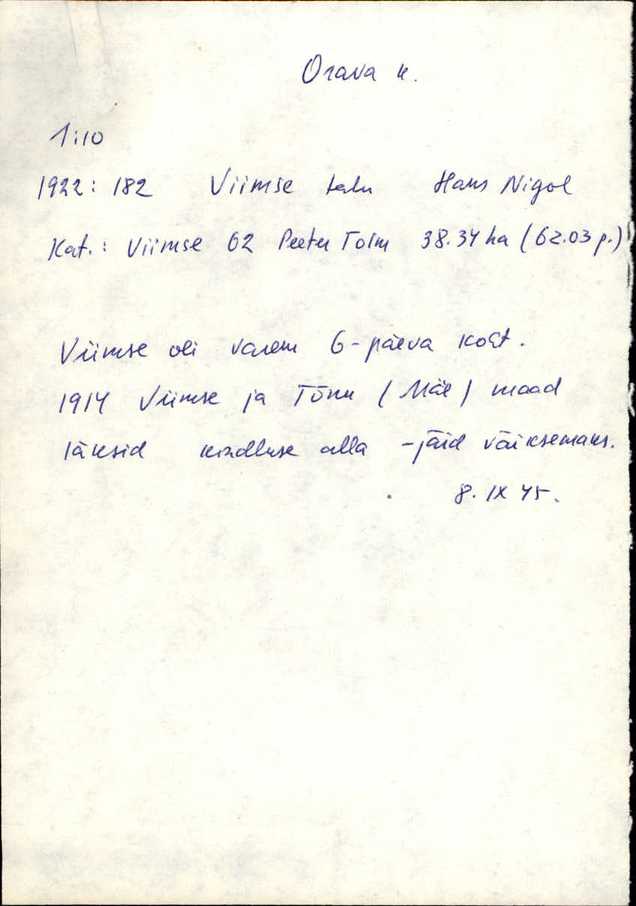 Orava k.
1:10
1922: 182 Viimse talu Hans Nigol
Kat.: Viimse 62 Peeter Toim 38.34 ha (62.03 p.)
Viimse oli varem 6-päeva koht.
1914 Viimse ja Tõnu (Mäe) maad
läksid kindluse alla - jäid väiksemaks.
8. IX 45.